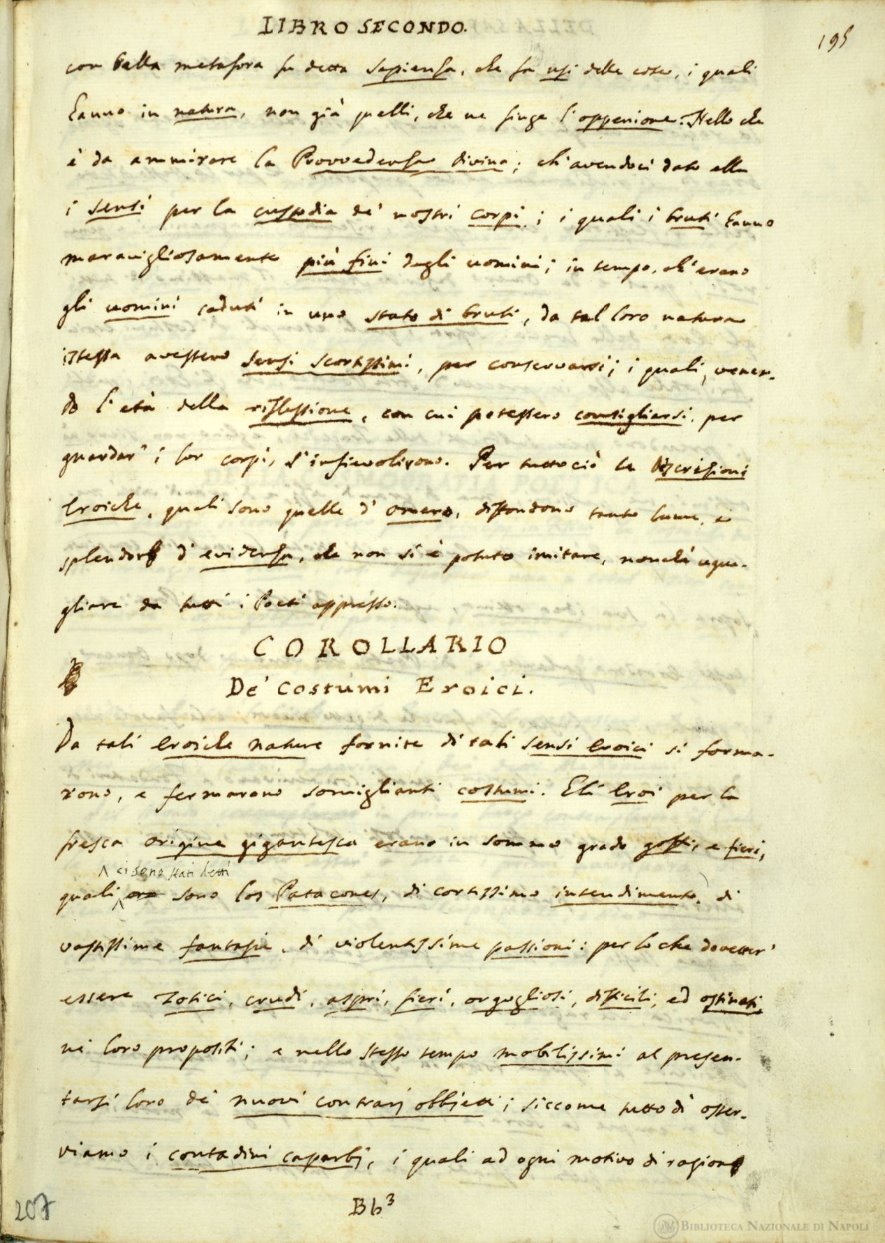 LIBRO SECONDO.
195
con bella metafora fu detta Sapienza, che fa usi delle cose, i quali
hanno in natura, non già quelli, che ne finge l'oppenione. Nello che
è da ammirare la Provvedenza divina; ch'avendoci dato ella
i sensi per la custodia de' nostri corpi; i quali i bruti hanno
maravigliosamente più fini degli uomini; in tempo, ch'erano
gli uomini caduti in uno stato di bruti, da tal loro natura
istessa avessero sensi scortissimi, per conservarsi; i quali, venen-
do l'età della riflessione, con cui potessero consigliarsi, per
guardar' i lor corpi, s'infievolirono. Per tuttociò le discrizioni
Eroiche, quali sono quelle d'Omero, diffondono tanto lume, e
splendore d'evidenza, che non si è potuto imitare, nonchè uqua-
gliare da tutti i Poeti appresso.
COROLLARIO
De' Costumi Eroici.
Da tali eroiche nature fornite di tali sensi eroici si forma-
rono, e fermarono somiglianti costumi. Eli Eroi per la
fresca origine gigantesca erano in sommo grado goffi, e fieri,
ci sono stati detti
quali sono los Patacones, di cortissimo intendimento, di
vastissime fantasie, di violentissime passioni: per lo che dovetter'
essere zotici, crudi, aspri, fieri, orgogliosi, difficili, ed ostinati
ne' loro propositi; e nello stesso tempo mobilissimi al presen-
tarsi loro de' nuovi contrarj obbjetti; siccome tutto dì osser-
viamo i contadini caparbj, i quali ad ogni motivo di ragione
Bb3
207
BIBLIOTECA NAZIONALE DI NAPOLI